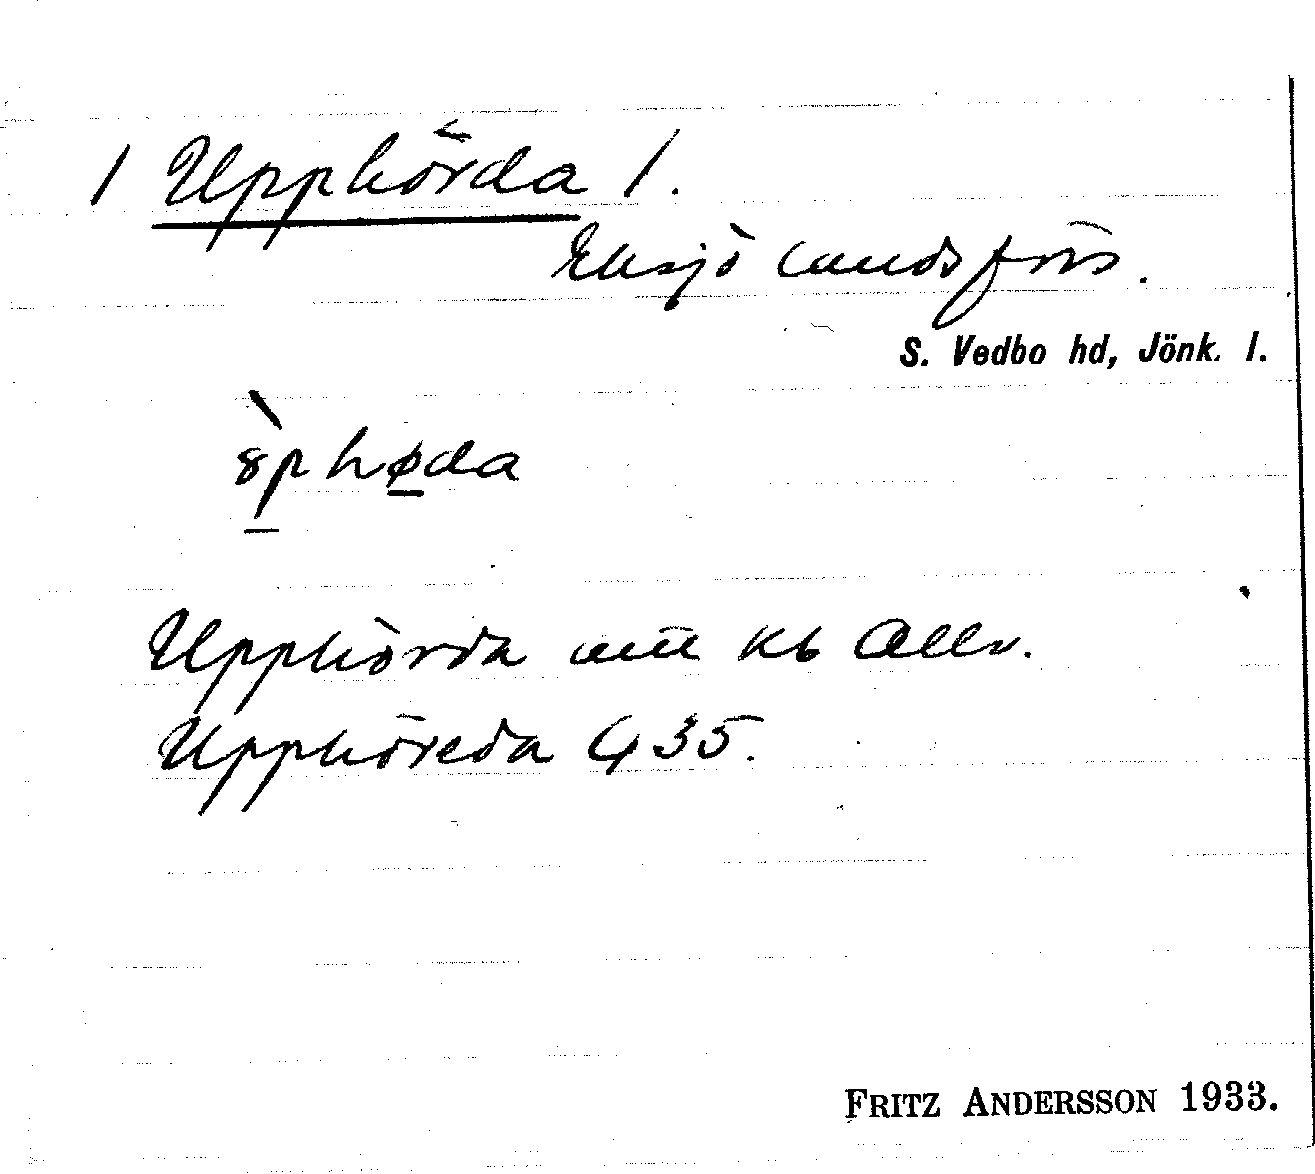 / Upphörda /.
Eksjö landsförs.
S. Vedbo hd, Jönk. l.
Upphörda Kb Allv.
Upphöreda G 35.
FRITZ ANDERSSON 1933.